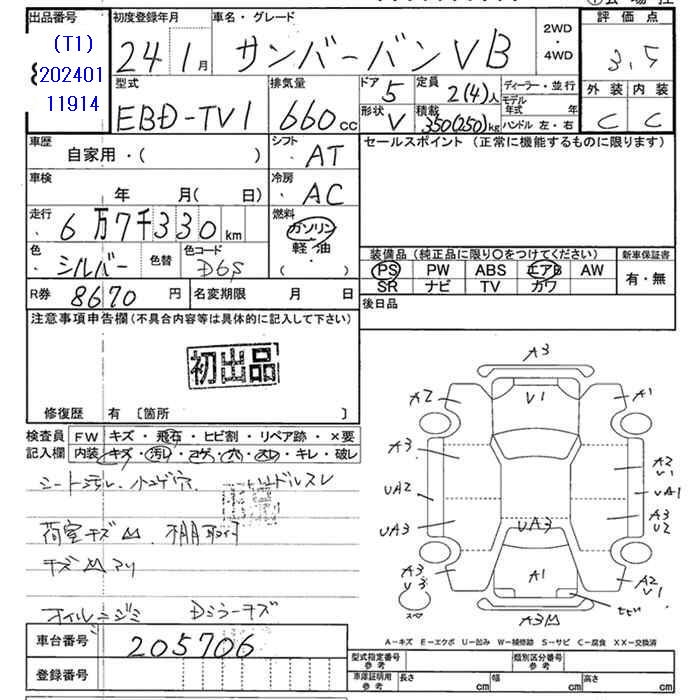 出品番号 (T1) 202401 11914
初度登録年月 24 1月
車名・グレード サンバーバン VB 2WD・4WD
評価点 3.5
型式 EBD-TV1
排気量 660cc
ドア 5
定員 2(4)人
ディーラー・並行
形状 V
積載 350(250)kg
モデル年式 年
ハンドル 左・右
外装 内装
C C
車歴 自家用・( )
シフト ・AT
セールスポイント (正常に機能するものに限ります)
車検 年 月( 日)
冷房 ・AC
走行 6万7千330km
燃料 ガソリン・軽油・( )
色 シルバー 色替
色コード D6S
装備品 (純正品に限り〇をつけてください) 新車保証書
PS PW ABS エアB AW 有・無
SR ナビ TV カワ
R券 8670円
名変期限 月 日
後日品
注意事項申告欄 (不具合内容等は具体的に記入して下さい)
初出品
修復歴 有 〔箇所 〕
検査員 FW キズ・飛石・ヒビ割・リペア跡・×要
記入欄 内装 キズ・汚レ・コゲ・穴・スレ・キレ・破レ
シート汚レ 小コゲ穴 ハンドルスレ
荷室キズ凹 棚取付
キズ凹アリ
オイルニジミ Dミラーキズ
車台番号 205706
登録番号
A3
A2 V1 A1
A3 A2 V1
UA2 UA1
UA3 UA3 A3 U2
A3 V3 A1 A2 V1
スペア ヒビ
A3凹
A-キズ E-エクボ U-凹み W-補修跡 S-サビ C-腐食 XX-交換済
型式指定番号 参考 類別区分番号 参考
車庫証明用 参考 長さ cm 幅 cm 高さ cm